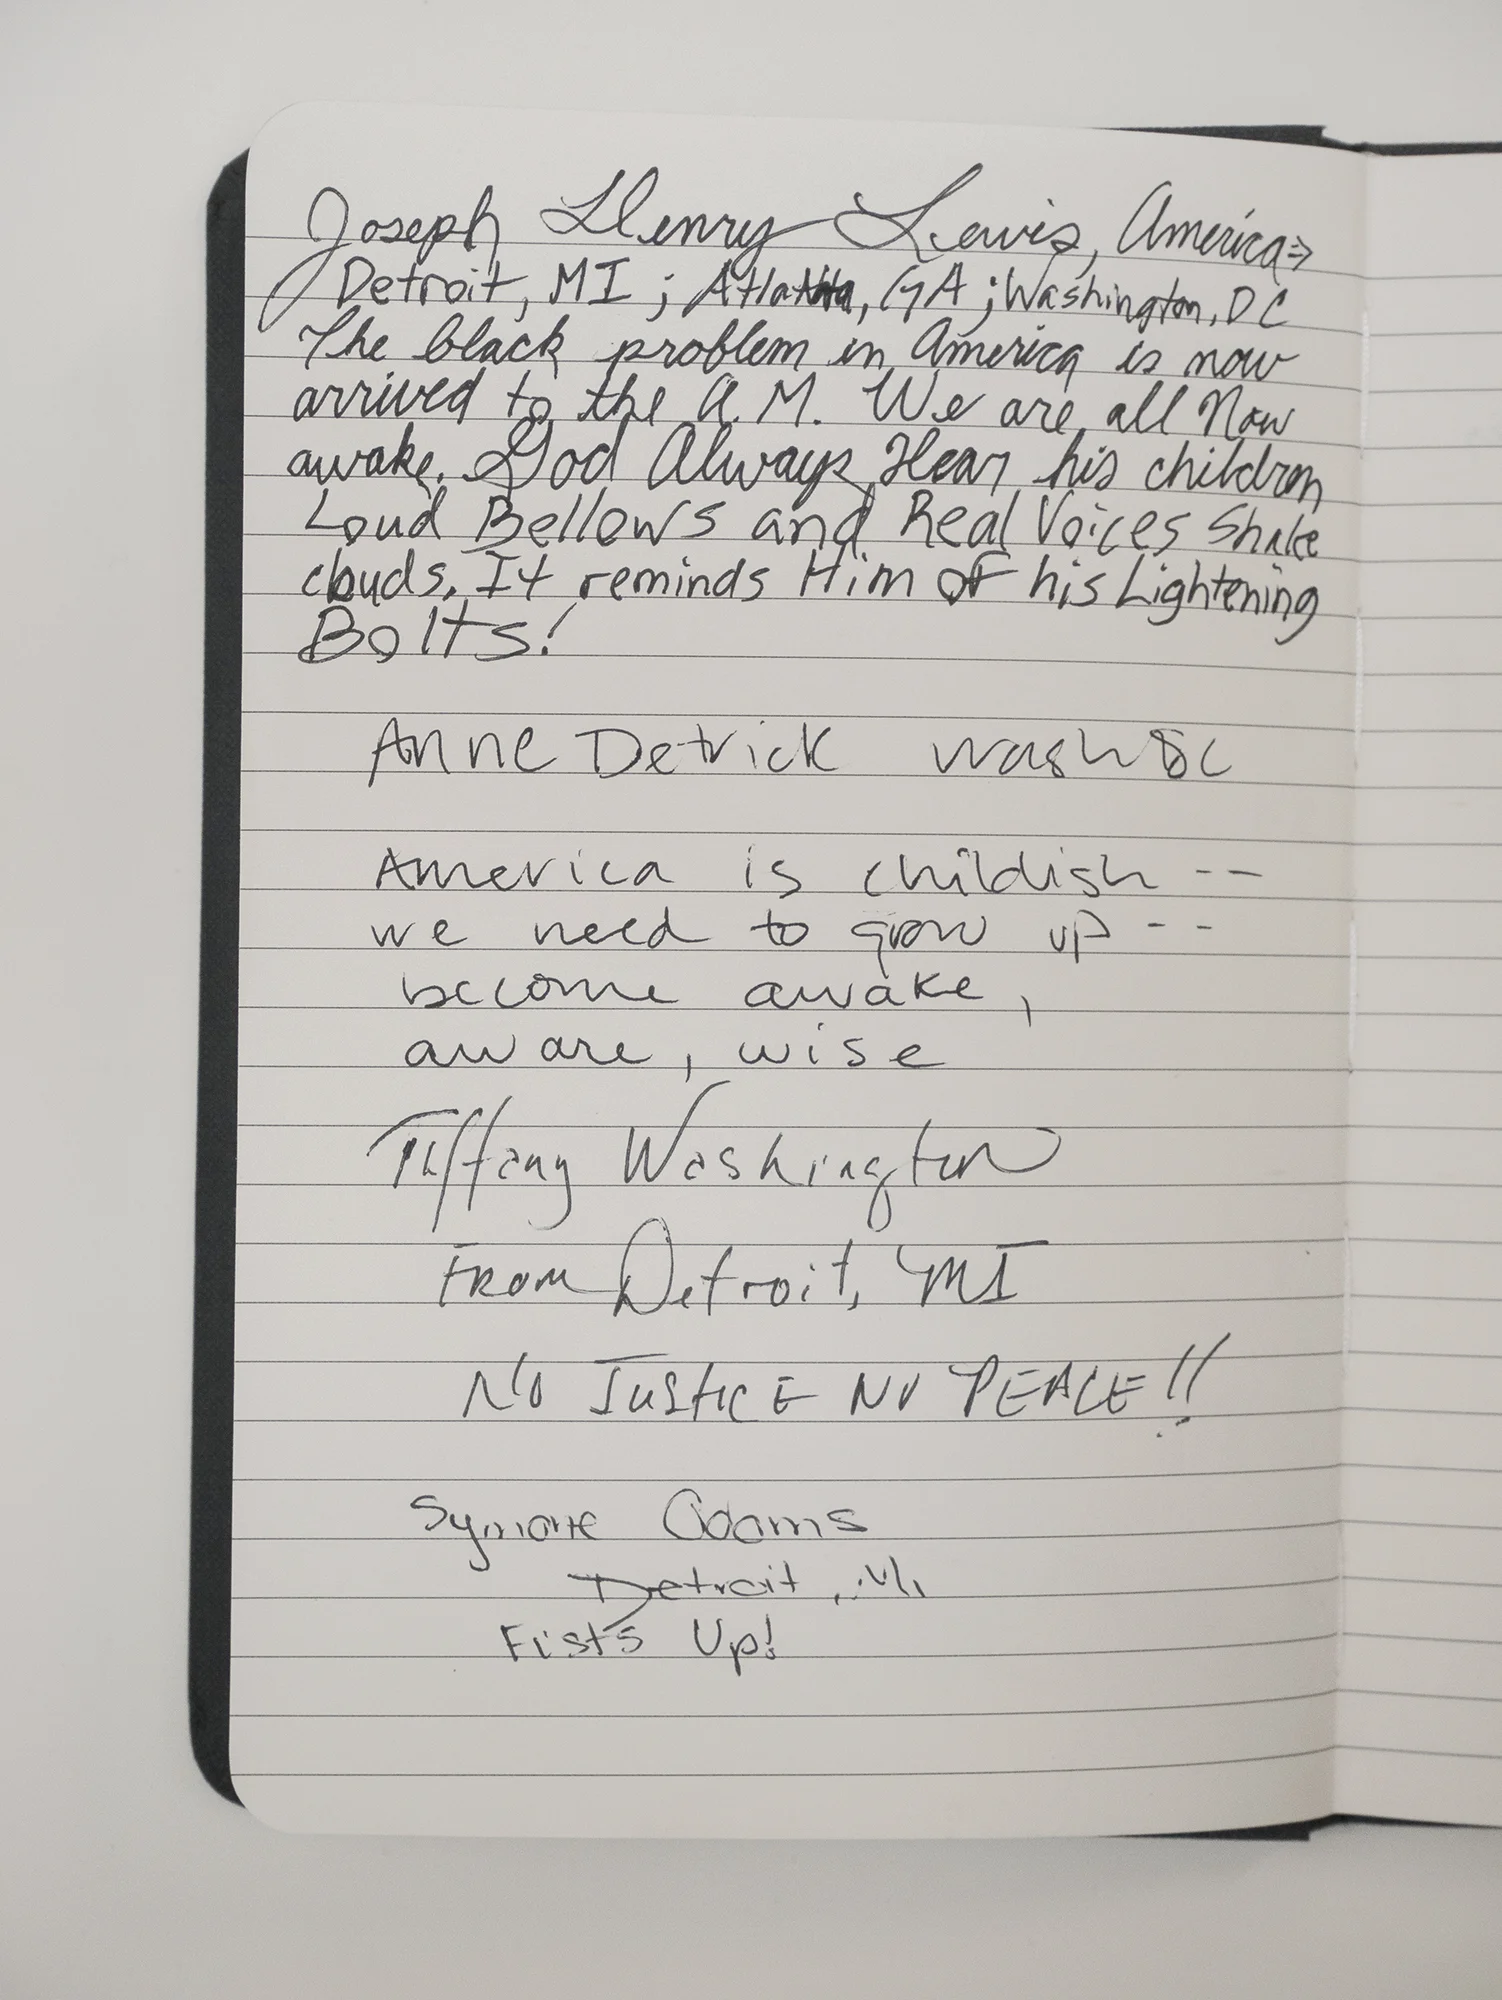 Joseph Henry Lewis, America=>
Detroit, MI ; Atlanta, GA ; Washington, DC
The black problem in America is now
arrived to the A.M. We are all Now
awake. God Always Hear his children
Loud Bellows and Real Voices Shake
clouds. It reminds Him of his Lightening
Bolts!
Anne Detrick Wash DC
America is childish --
we need to grow up --
become awake,
aware, wise
Tiffany Washington
From Detroit, MI
No JUSTICE NO PEACE!!
Symone Adams
Detroit, Mi
Fists Up!